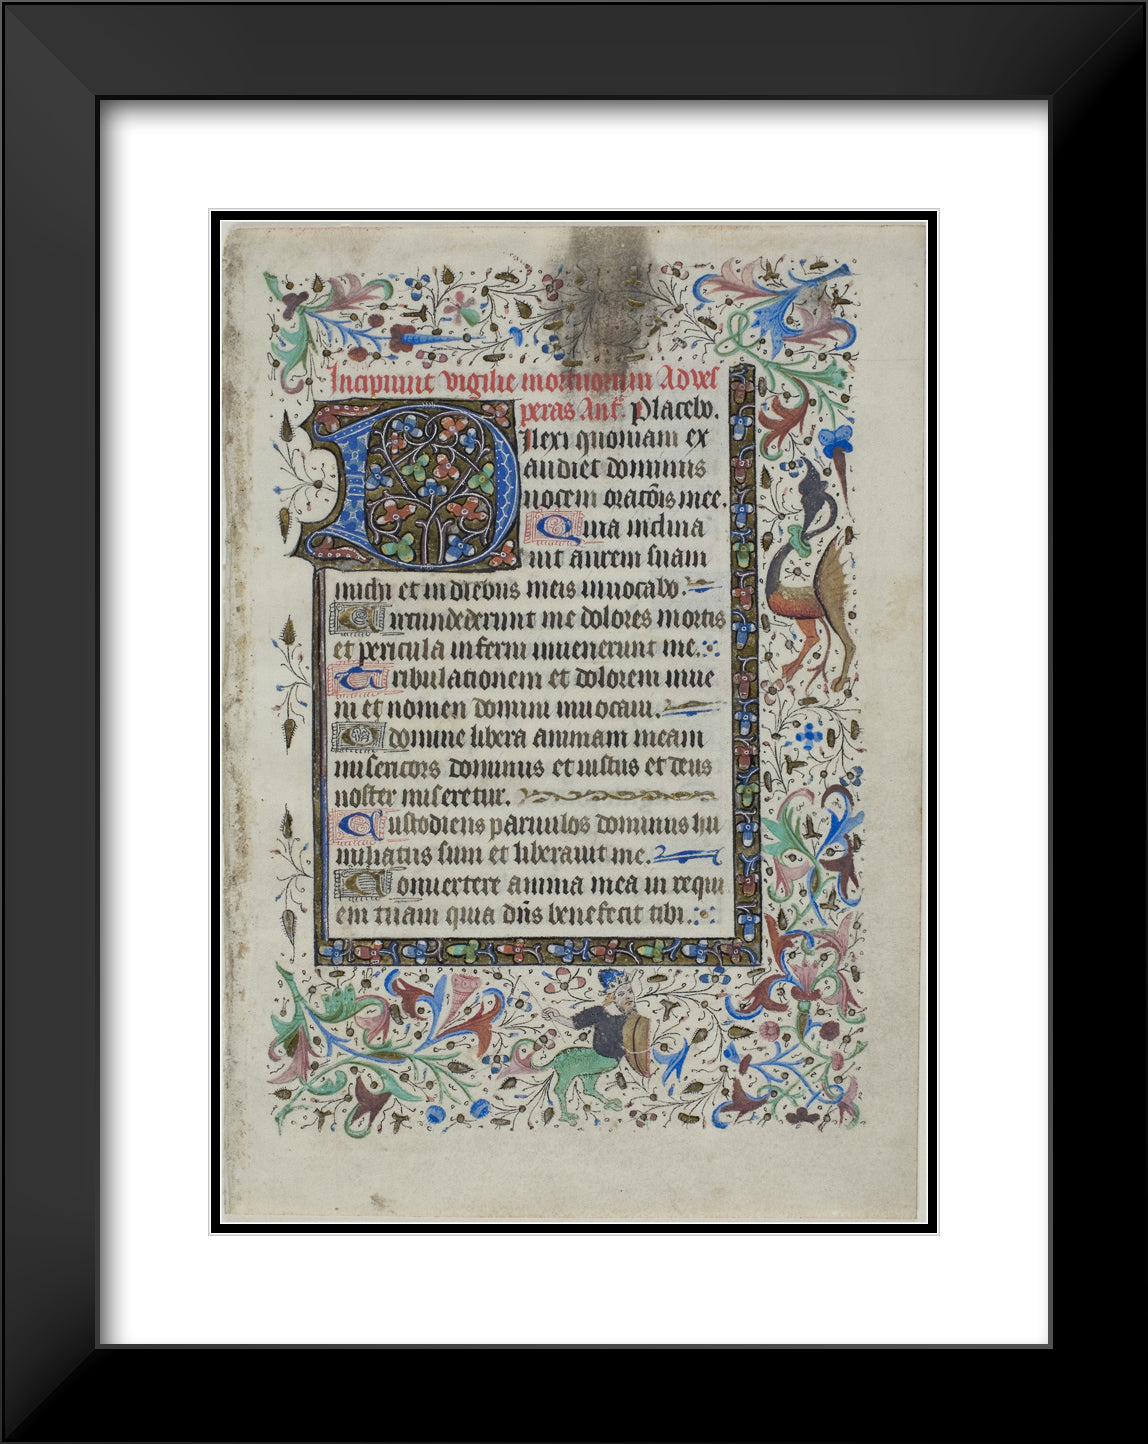 Incipiunt vigilie mortuorum Ad ves
peras Ant. Placebo.
Dilexi quoniam ex
audiet dominus
uocem orationis mee.
Quia inclina
uit aurem suam
michi et in diebus meis inuocabo.
Circundederunt me dolores mortis
et pericula inferni inuenerunt me.
Tribulationem et dolorem inue
ni et nomen domini inuocaui.
O domine libera animam meam
misericors dominus et iustus et deus
noster miseretur.
Custodiens paruulos dominus hu
miliatus sum et liberauit me.
Conuertere anima mea in requi
em tuam quia dns benefecit tibi.